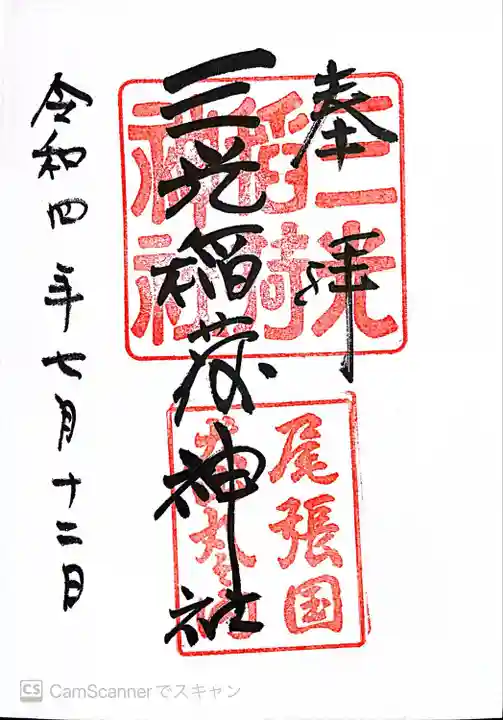 奉拝
三光稲荷神社
令和四年七月十二日
三光
稲荷
神社
尾張国
CS CamScannerでスキャン